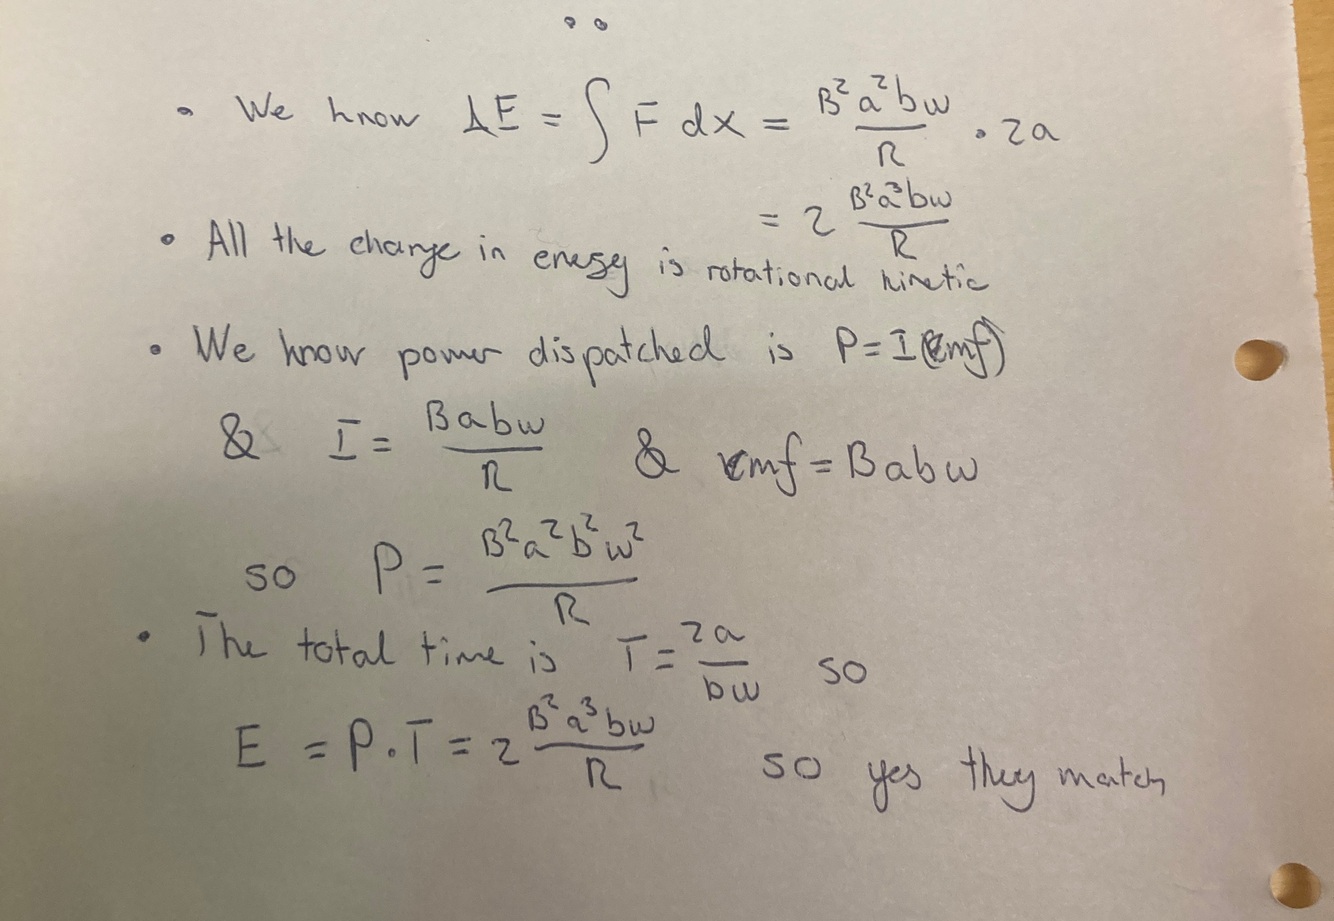 • We know ΔE = ∫ F dx = B²a²bω/R · 2a
= 2 B²a³bω/R
• All the change in energy is rotational kinetic
• We know power dispatched is P = I(emf)
& I = Babω/R & emf = Babω
so P = B²a²b²ω²/R
• The total time is T = 2a/bω so
E = P·T = 2 B²a³bω/R so yes they match